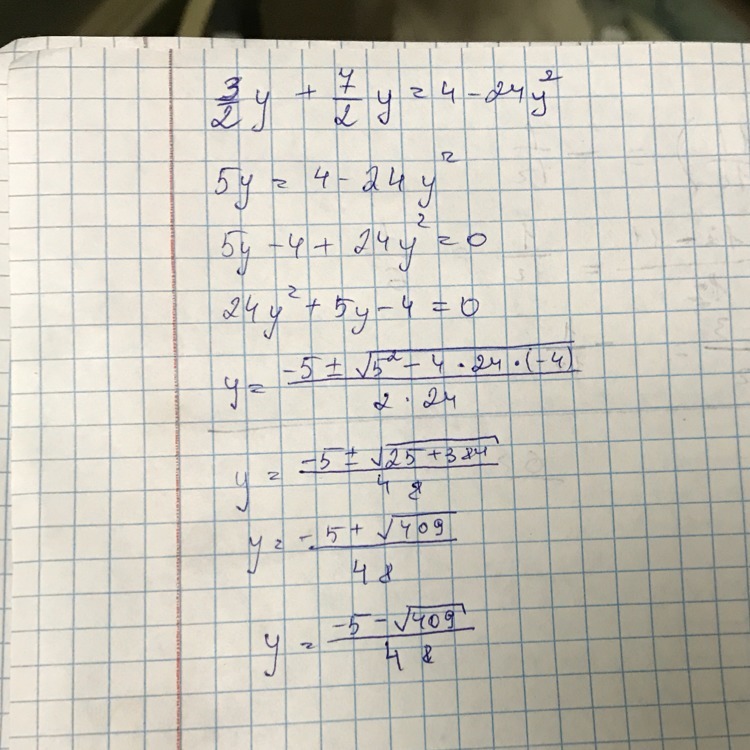 3/2 y + 7/2 y = 4 - 24y²
5y = 4 - 24y²
5y - 4 + 24y² = 0
24y² + 5y - 4 = 0
y = (-5 ± √(5² - 4 · 24 · (-4))) / (2 · 24)
y = (-5 ± √(25 + 384)) / 48
y = (-5 + √409) / 48
y = (-5 - √409) / 48